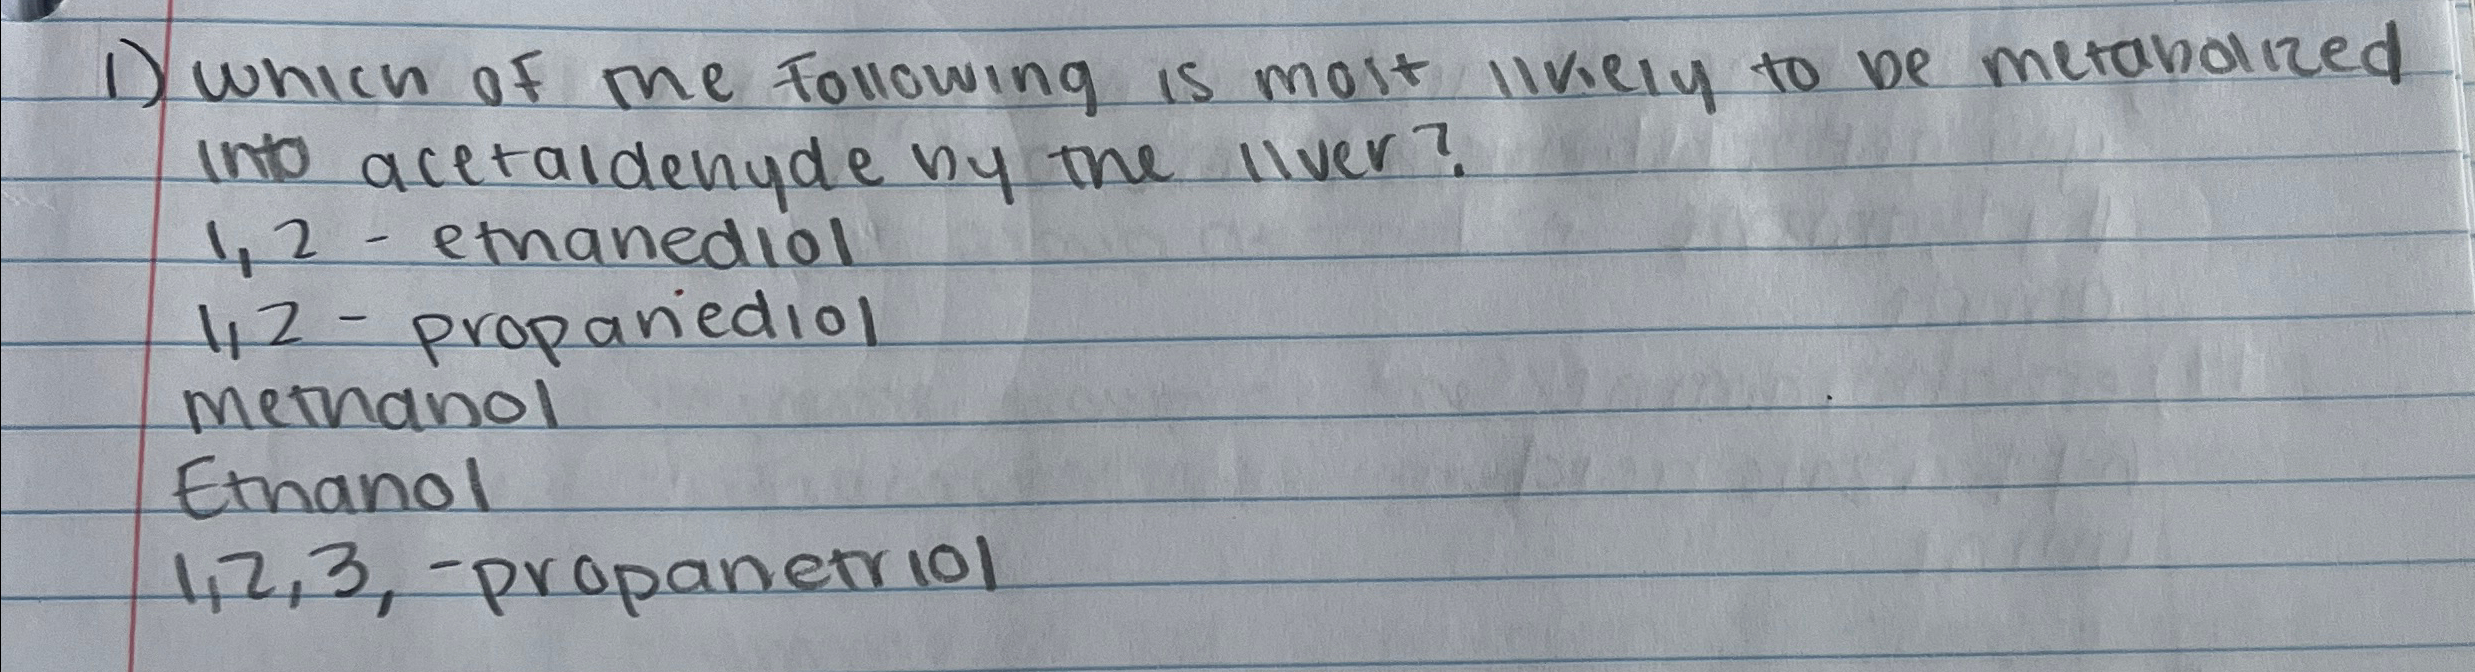 1) which of the following is most likely to be metabolized
into acetaldehyde by the liver?
1,2 - ethanediol
1,2 - propanediol
methanol
Ethanol
1,2,3,-propanetriol